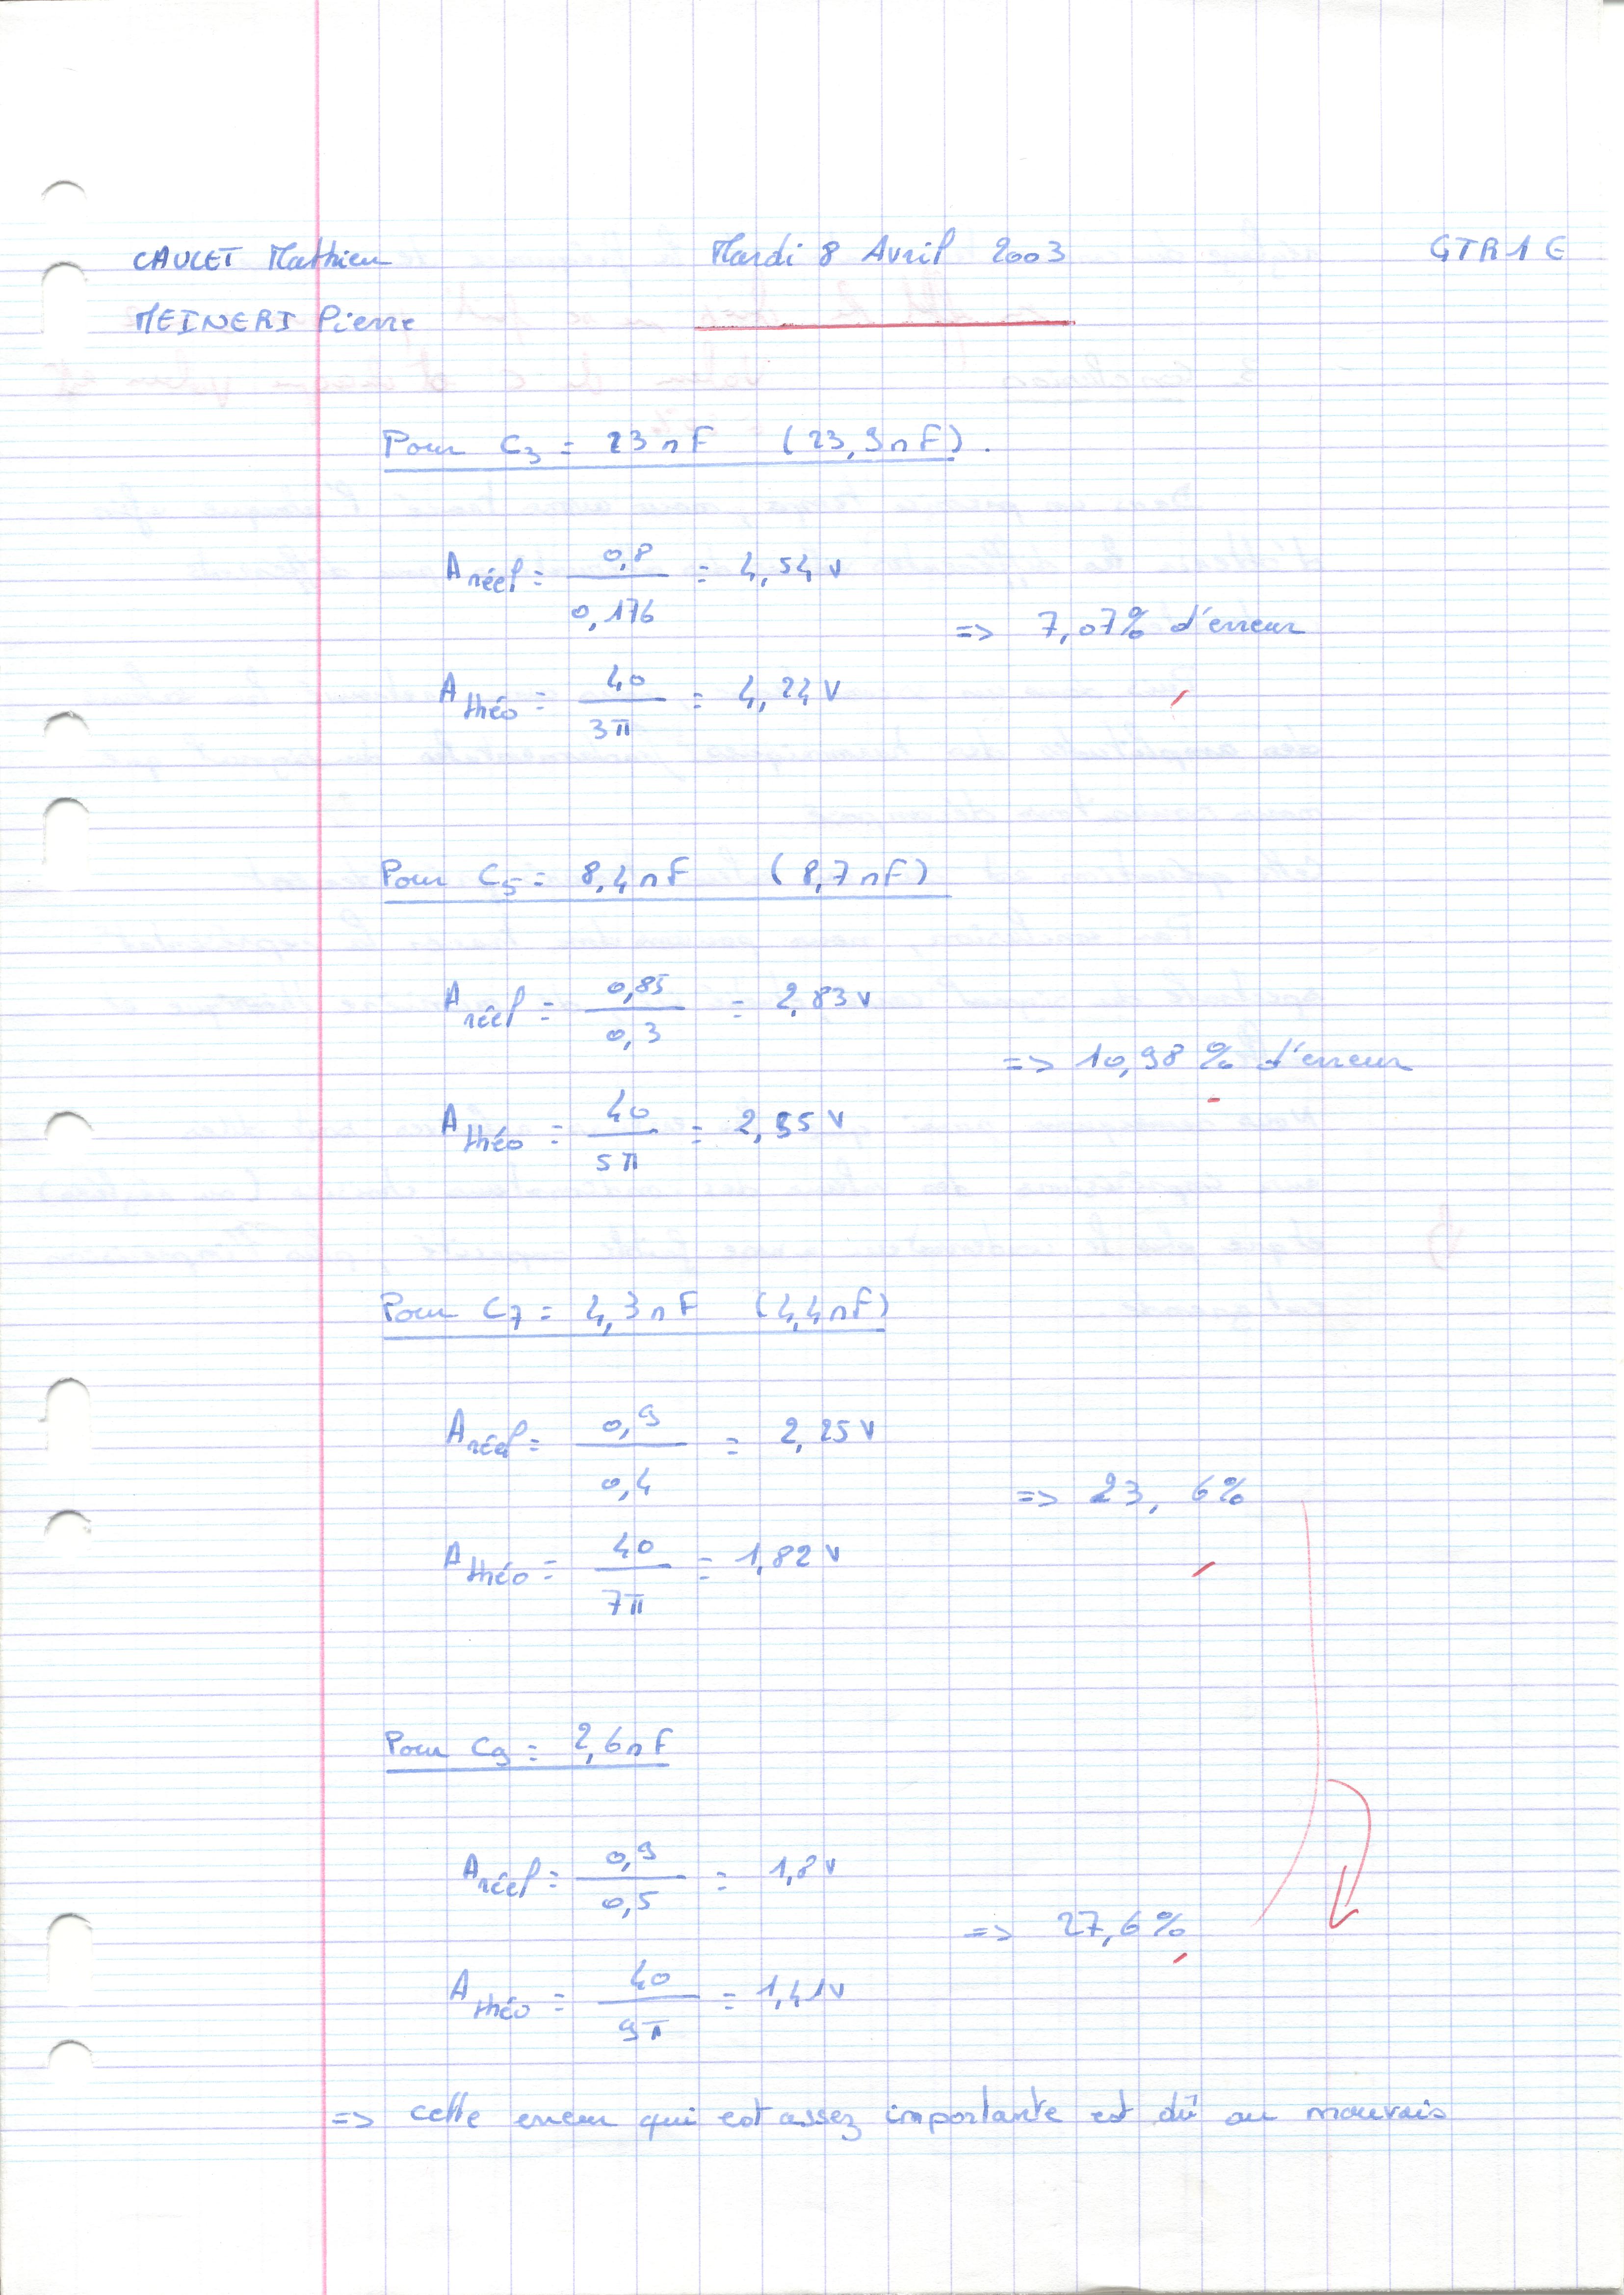 CAULET Mathieu Mardi 8 Avril 2003 GTR1 E
MEINERI Pierre
Pour C3 = 23 nF (23,9nF).
A réel = 0,8 / 0,176 = 4,54 V
=> 7,07% d'erreur
A théo = 40 / 3π = 4,24 V
Pour C5 = 8,4nF (8,7nF)
A réel = 0,85 / 0,3 = 2,83 V
=> 10,98 % d'erreur
A théo = 40 / 5π = 2,55 V
Pour C7 = 4,3nF (4,4nF)
A réel = 0,9 / 0,4 = 2,25 V
=> 23,6%
A théo = 40 / 7π = 1,82 V
Pour C9 = 2,6nF
A réel = 0,9 / 0,5 = 1,8 V
=> 27,6%
A théo = 40 / 9π = 1,41V
=> cette erreur qui est assez importante est dû au mauvais